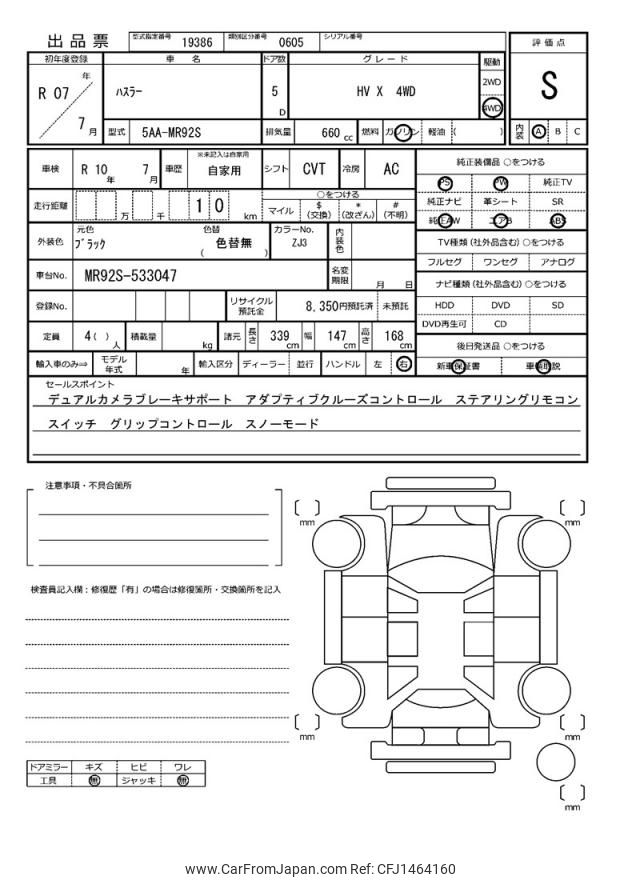 出品票 型式指定番号 19386 類別区分番号 0605 シリアル番号
評価点
S
内装 A B C
初年度登録 車名 ドア数 グレード 駆動
R 07 年 7 月 ハスラー 5 D HV X 4WD 2WD 4WD
型式 5AA-MR92S 排気量 660 cc 燃料 ガソリン 軽油 ( )
車検 R 10 年 7 月 車歴 ※未記入は自家用 自家用 シフト CVT 冷房 AC
走行距離 万 千 1 0 km ○をつける
マイル $ (交換) * (改ざん) # (不明)
外装色 元色 ブラック 色替 ( 色替無 ) カラーNo. ZJ3 内装色
車台No. MR92S-533047 名変期限 月 日
登録No. リサイクル預託金 8,350円預託済 未預託
定員 4( ) 人 積載量 kg 諸元 長さ 339 cm 幅 147 cm 高さ 168 cm
輸入車のみ⇒ モデル年式 年 輸入区分 ディーラー 並行 ハンドル 左 右
純正装備品 ○をつける
PS PW 純正TV
純正ナビ 革シート SR
純正AW エアB ABS
TV種類(社外品含む)○をつける
フルセグ ワンセグ アナログ
ナビ種類(社外品含む)○をつける
HDD DVD SD
DVD再生可 CD
後日発送品 ○をつける
新車保証書 車輌取説
セールスポイント
デュアルカメラブレーキサポート アダプティブクルーズコントロール ステアリングリモコン
スイッチ グリップコントロール スノーモード
注意事項・不具合箇所
検査員記入欄:修復歴「有」の場合は修復箇所・交換箇所を記入
[ ] mm
[ ] mm
[ ] mm
[ ] mm
[ ] mm
ドアミラー キズ ヒビ ワレ
工具 無 ジャッキ 無
www.CarFromJapan.com Ref: CFJ1464160